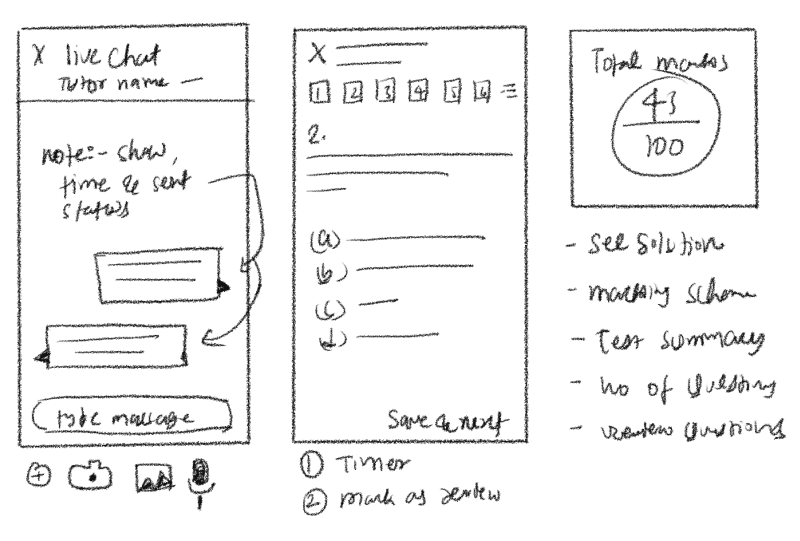 X live Chat
Tutor name —
note:- show,
time & sent
status
type massage
X
1 2 3 4 5 6
2.
(a)
(b)
(c)
d)
Save & next
1 Timer
2 mark as review
Total marks
43
100
- See Solution
- marking scheme
- Test Summary
- No of Questiony
- review Questions